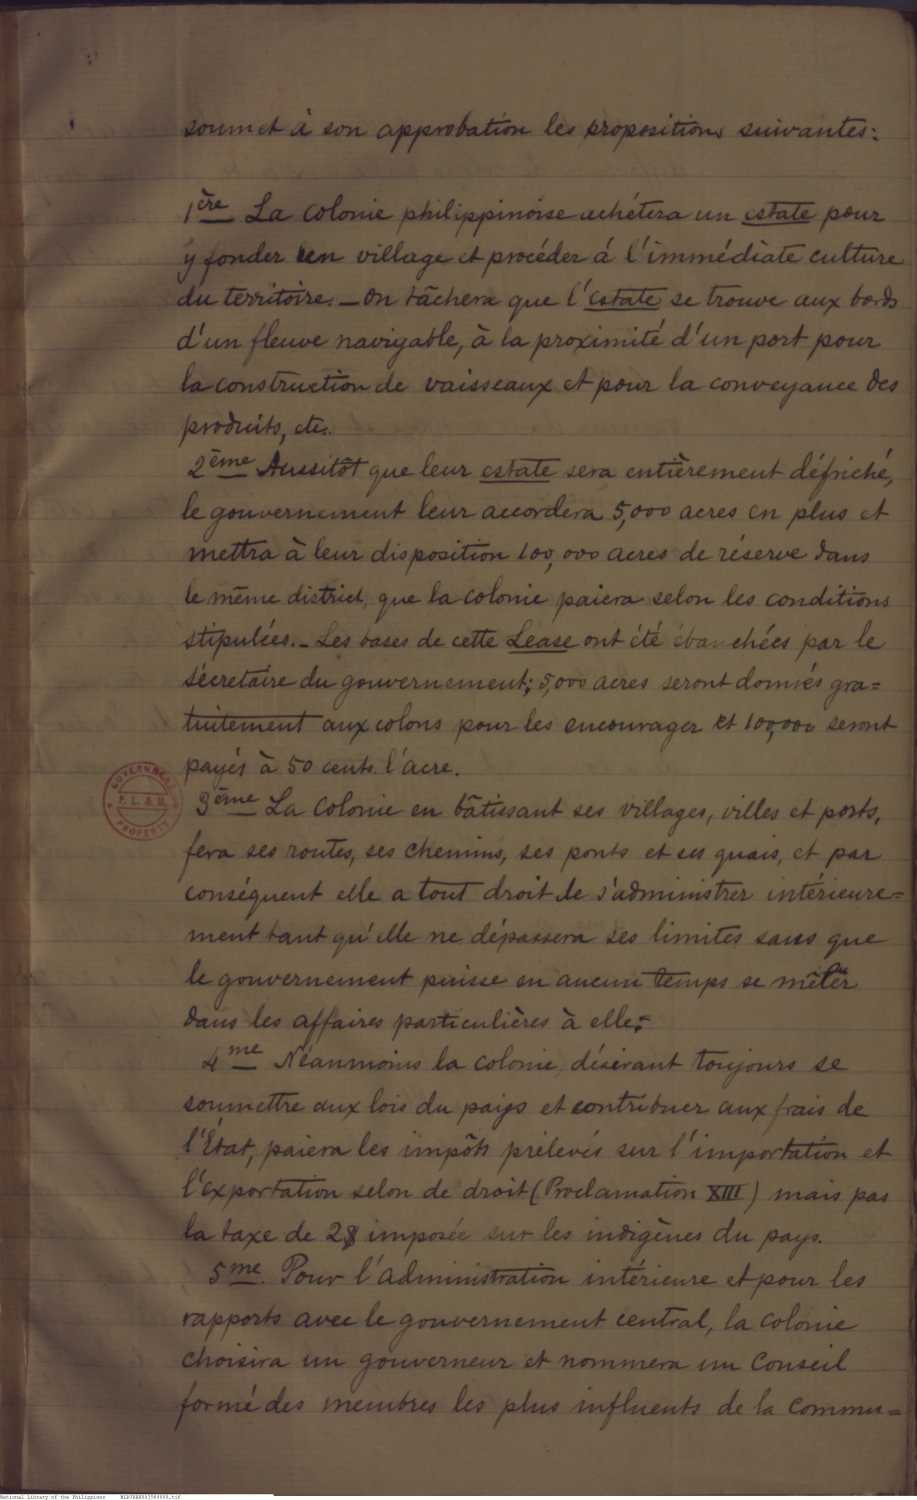 soumet à son approbation les propositions suivantes:
1ère La colonie philippinoise achétera un estate pour
y fonder un village et procéder á l'immédiate culture
du territoire. — On tâchera que l'estate se trouve aux bords
d'un fleuve navigable, à la proximité d'un port pour
la construction de vaisseaux et pour la conveyance des
produits, etc.
2ème Aussitôt que leur estate sera entièrement défriché,
le gouvernement leur accordera 5,000 acres en plus et
mettra à leur disposition 100,000 acres de réserve dans
le même district, que la colonie paiera selon les conditions
stipulées. — Les bases de cette Lease ont été ébauchées par le
sécretaire du gouvernement; 5,000 acres seront donnés gra=
tuitement aux colons pour les encourager et 100,000 seront
payés à 50 cents l'acre.
3ème La Colonie en bâtissant ses villages, villes et ports,
fera ses routes, ses chemins, ses ponts et ses quais, et par
conséquent elle a tout droit de s'administrer intérieure=
ment tant qu'elle ne dépassera ses limites sans que
le gouvernement puisse en aucun temps se mêler
dans les affaires particulières à elle;-
4me Néanmoins la colonie, désirant toujours se
soumettre aux lois du pays et contribuer aux frais de
l'État, paiera les impôts prélevés sur l'importation et
l'exportation selon de droit (Proclamation XIII) mais pas
la taxe de 2$ imposée sur les indigènes du pays.
5me. Pour l'administration intérieure et pour les
rapports avec le gouvernement central, la colonie
choisira un gouverneur et nommera un Conseil
formé des membres les plus influents de la commu=
GOVERNMENT
P. L. & M.
PROPERTY
National Library of the Philippines